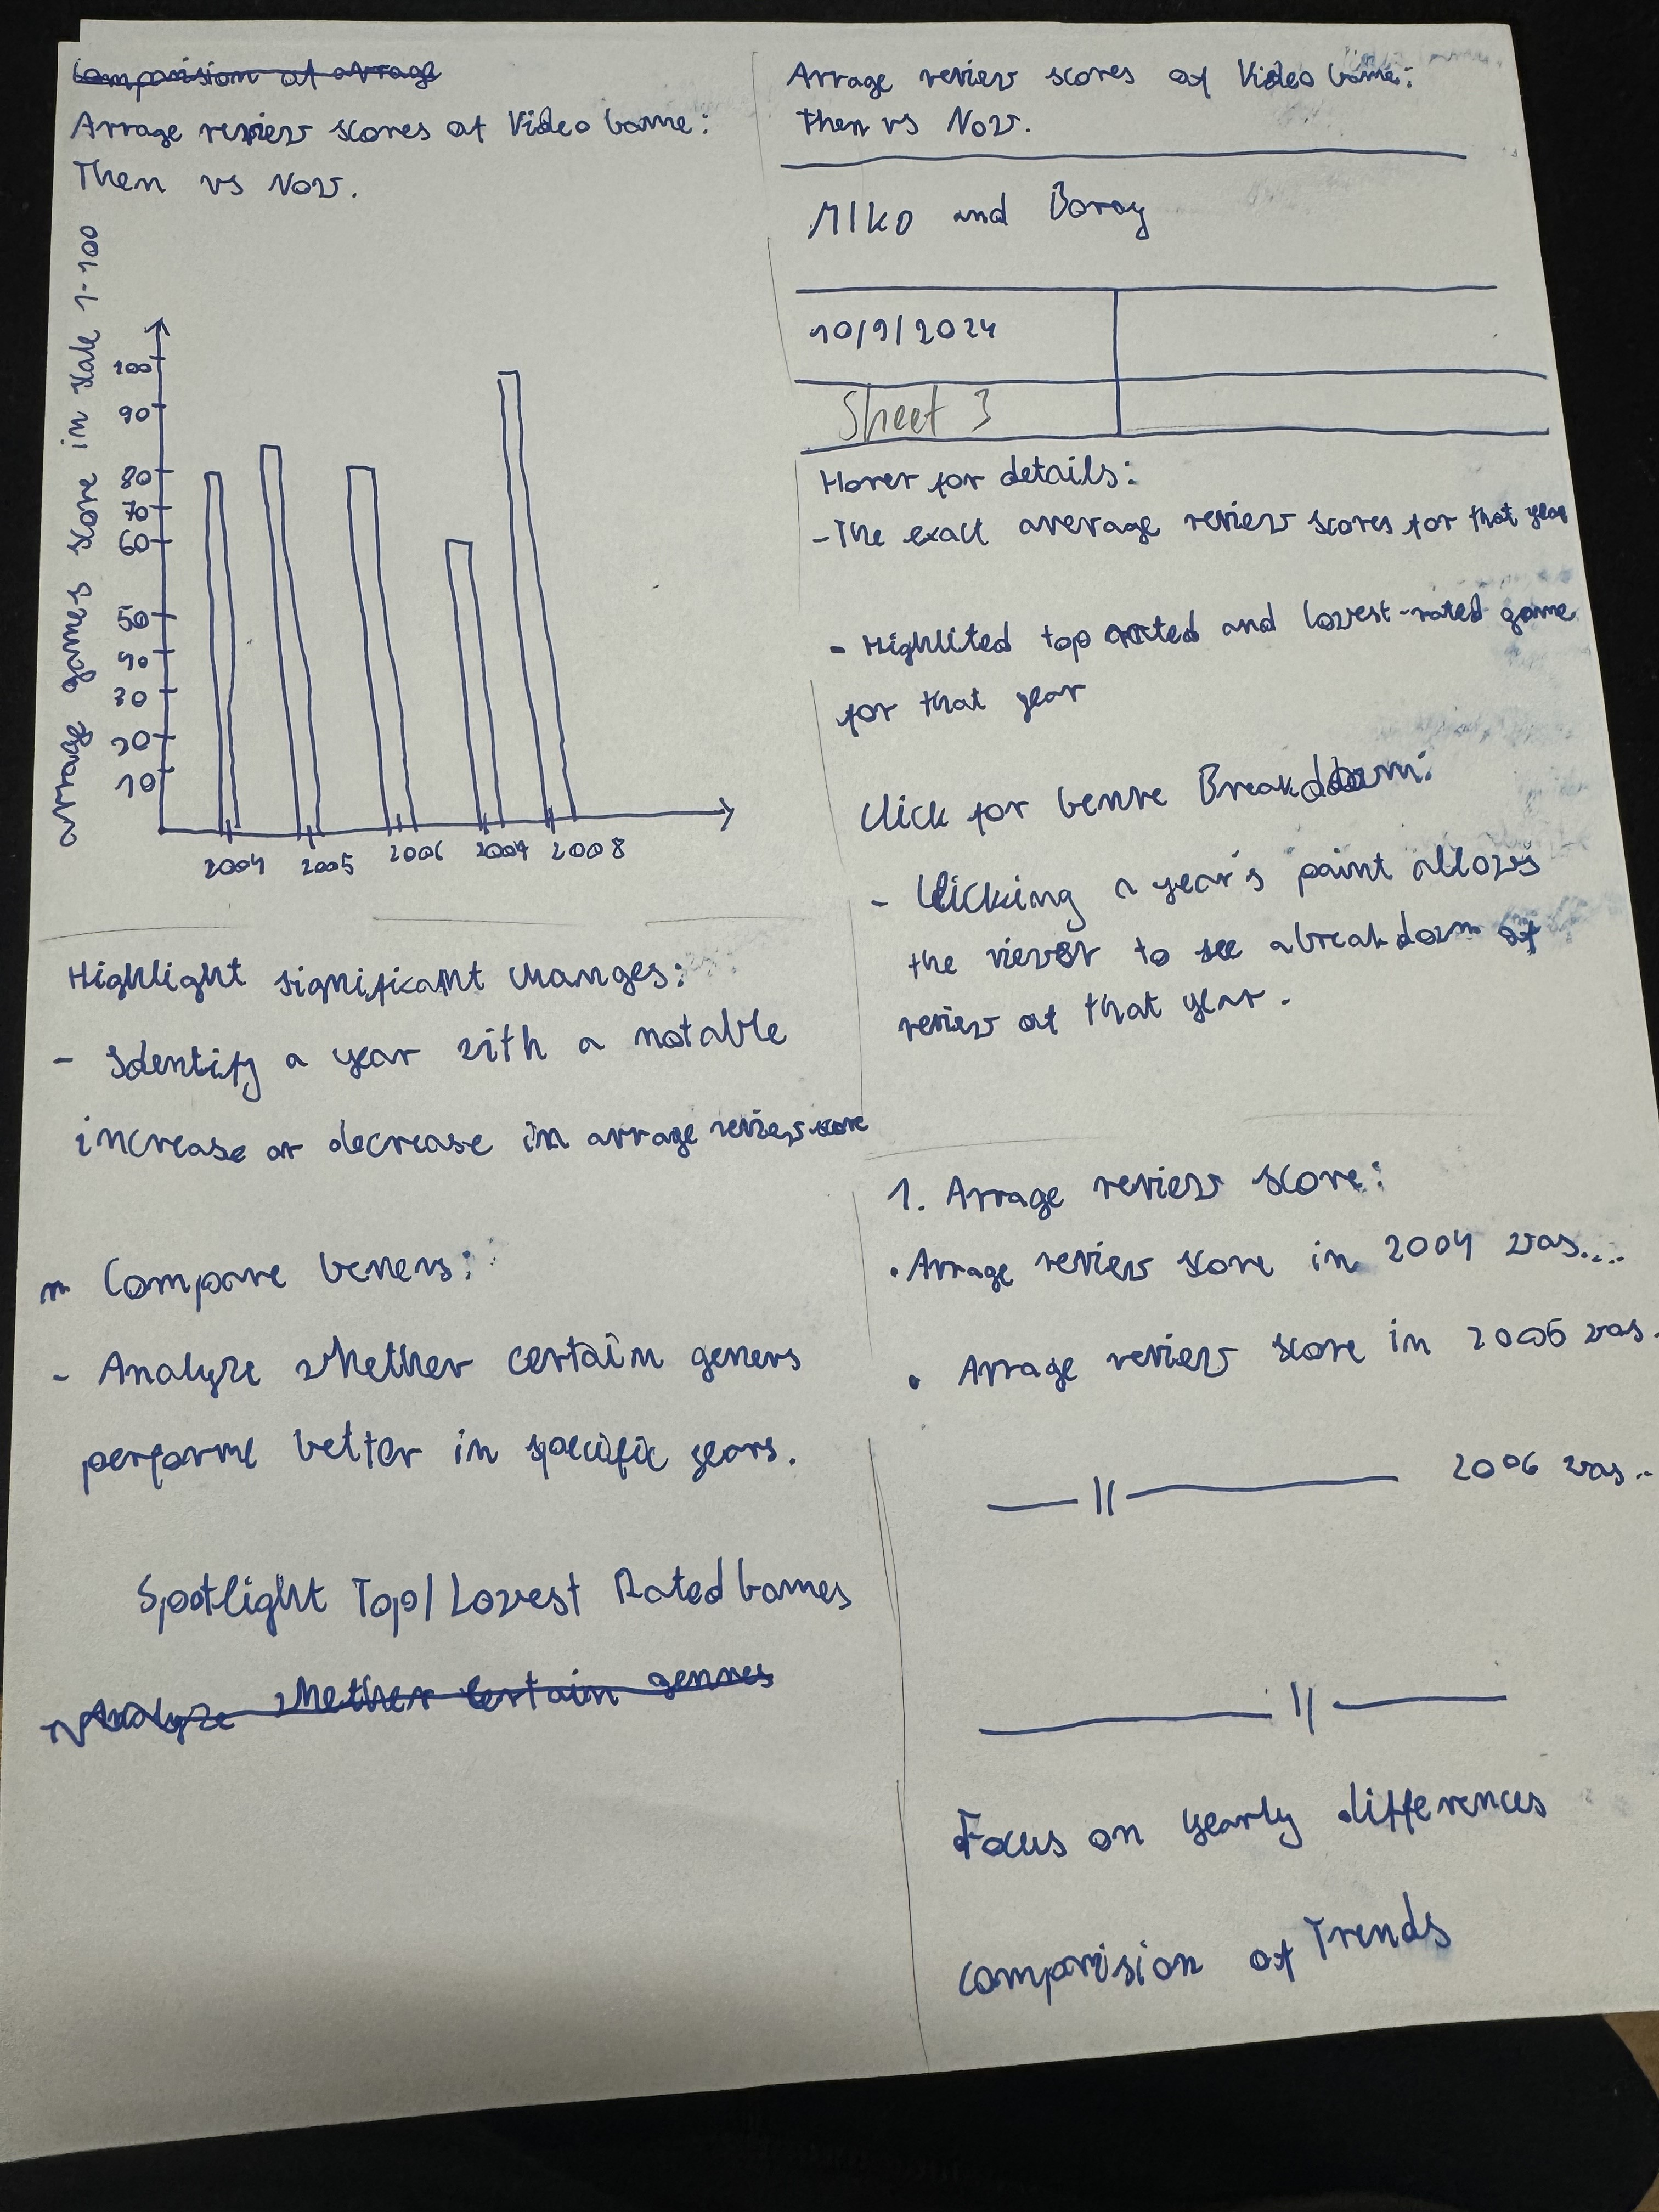 Comparision of avrage
Avrage review scores of Video Game:
Then vs Now.
avrage games score in scale 1-100
100
90
80
70
60
50
40
30
20
10
2004 2005 2006 2007 2008
Highlight significant changes:
- Identify a year with a notable
increase or decrease in avrage review score
Compare Geners:
- Analyze whether certain geners
performe better in specific years.
Spotlight Top/Lowest Rated Games
Analyze whether certain genres
Avrage review scores of Video Game:
Then vs Now.
MIKO and Boray
10/9/2024
Sheet 3
Hover for details:
- The exact average review scores for that year
- Highlited top rated and lowest-rated game
for that year
Click for Genre Breakdown:
- Clicking a year's point allows
the viewer to see a breakdown of
review of that year.
1. Avrage review score:
• Avrage review score in 2004 was....
• Avrage review score in 2005 was.
— || — 2006 was..
— || —
Focus on yearly differences
comparision of Trends